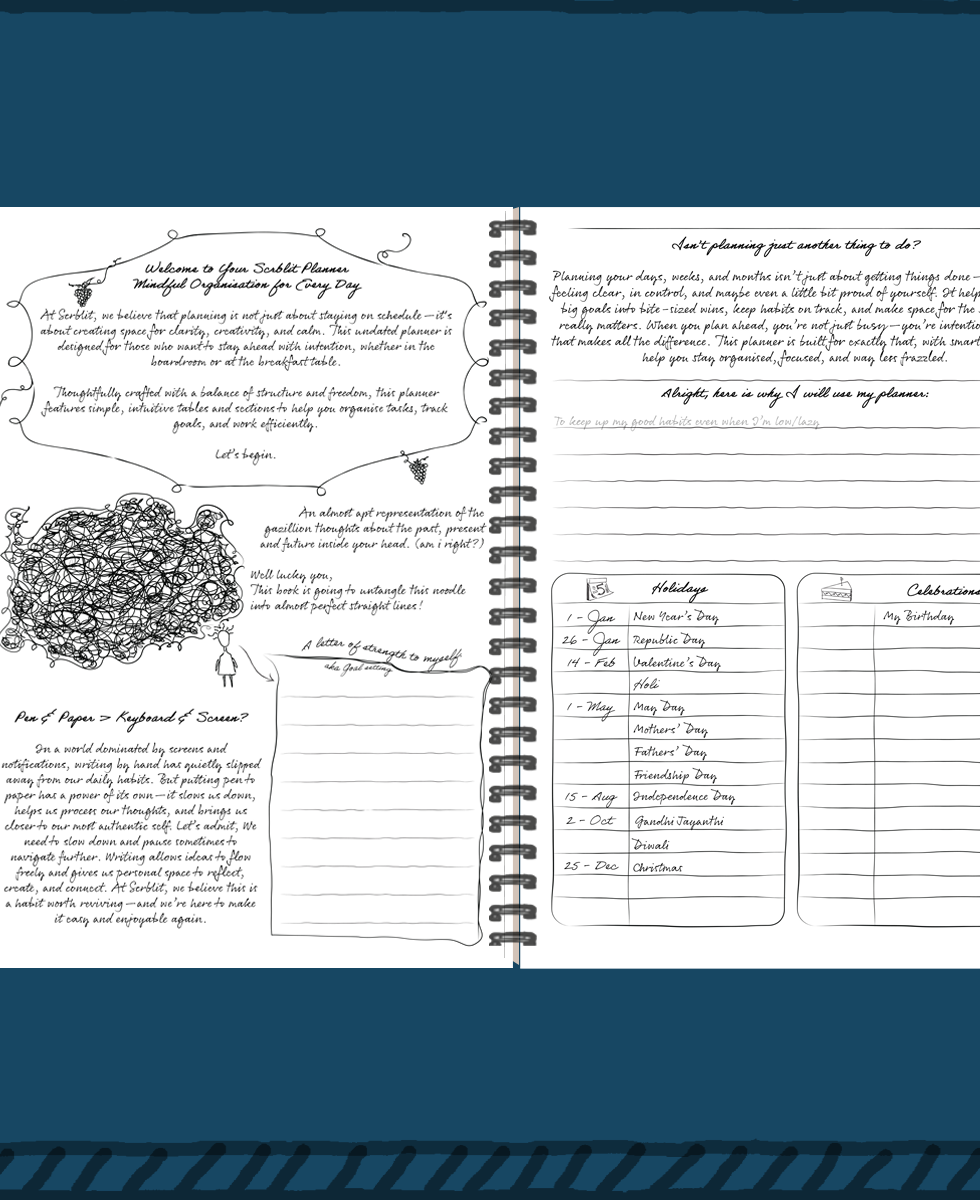 Welcome to Your Scrblit Planner
Mindful Organisation for Every Day
At Scrblit, we believe that planning is not just about staying on schedule—it's
about creating space for clarity, creativity, and calm. This undated planner is
designed for those who want to stay ahead with intention, whether in the
boardroom or at the breakfast table.
Thoughtfully crafted with a balance of structure and freedom, this planner
features simple, intuitive tables and sections to help you organise tasks, track
goals, and work efficiently.
Let's begin.
An almost apt representation of the
gazillion thoughts about the past, present
and future inside your head. (am i right?)
Well lucky you,
This book is going to untangle this noodle
into almost perfect straight lines!
A letter of strength to myself
aka Goal setting
Pen & Paper > Keyboard & Screen?
In a world dominated by screens and
notifications, writing by hand has quietly slipped
away from our daily habits. But putting pen to
paper has a power of its own—it slows us down,
helps us process our thoughts, and brings us
closer to our most authentic self. Let's admit, We
need to slow down and pause sometimes to
navigate further. Writing allows ideas to flow
freely and gives us personal space to reflect,
create, and connect. At Scrblit, we believe this is
a habit worth reviving—and we're here to make
it easy and enjoyable again.
Isn't planning just another thing to do?
Planning your days, weeks, and months isn't just about getting things done—
feeling clear, in control, and maybe even a little bit proud of yourself. It help
big goals into bite-sized wins, keep habits on track, and make space for the
really matters. When you plan ahead, you're not just busy—you're intentio
that makes all the difference. This planner is built for exactly that, with smart
help you stay organised, focused, and way less frazzled.
Alright, here is why I will use my planner:
To keep up my good habits even when I'm low/lazy
Holidays
1 - Jan New Year's Day
26 - Jan Republic Day
14 - Feb Valentine's Day
Holi
1 - May May Day
Mothers' Day
Fathers' Day
Friendship Day
15 - Aug Independence Day
2 - Oct Gandhi Jayanthi
Diwali
25 - Dec Christmas
Celebrations
My Birthday